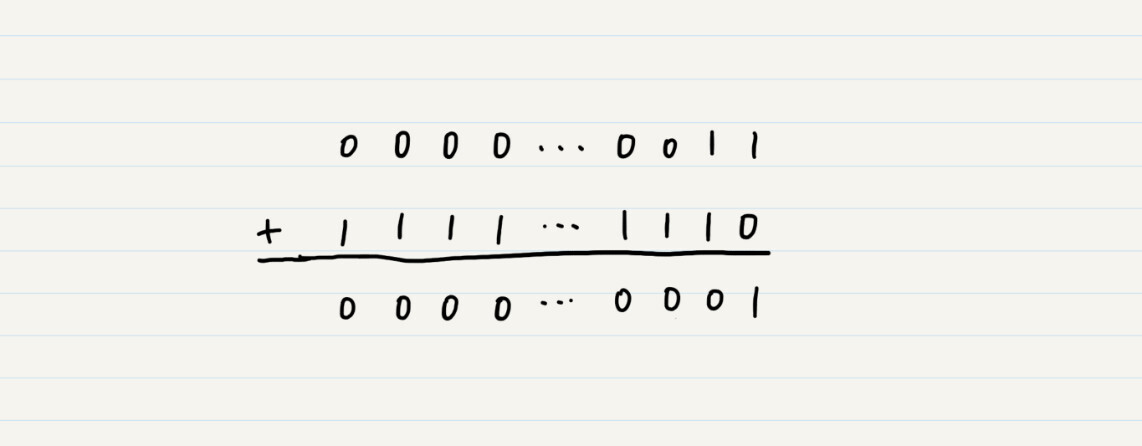 0 0 0 0 ... 0 0 1 1
+ 1 1 1 1 ... 1 1 1 0
0 0 0 0 ... 0 0 0 1